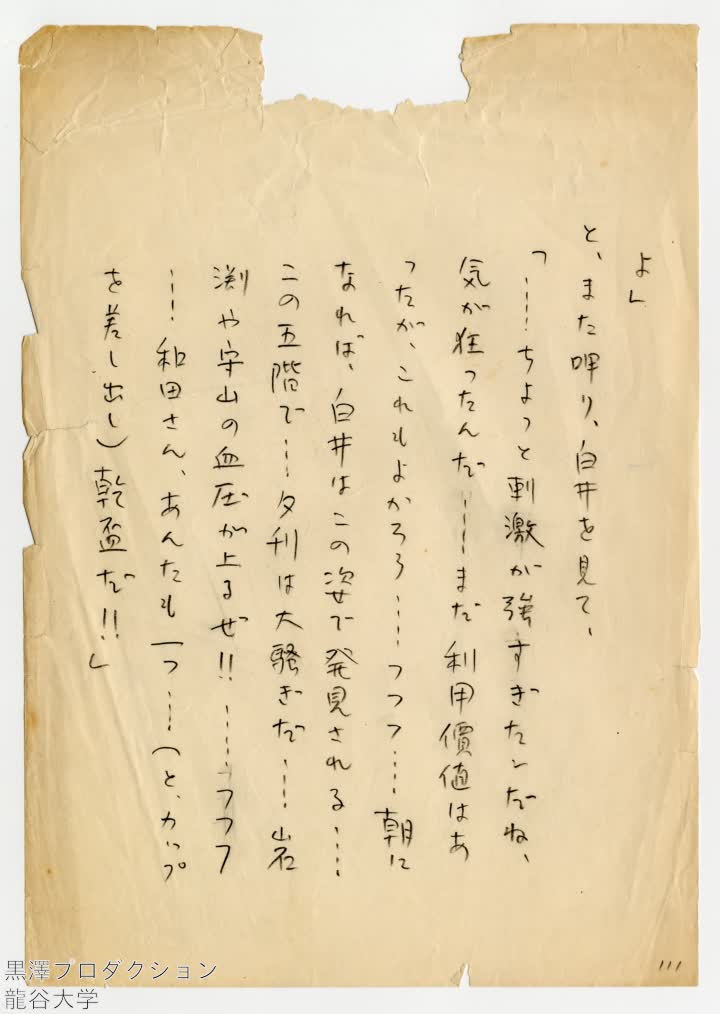 よ」
と、また呷り、白井を見て、
「……ちょっと刺激が強すぎたンだね、
気が狂ったんだ……まだ利用價値はあ
ったが、これもよかろう……フフフ……朝に
なれば、白井はこの姿で発見される……
この五階で……夕刊は大騒ぎだ……岩
渕や守山の血圧が上るぜ!!……フフフ
……和田さん、あんたも一つ……(と、カップ
を差し出し)乾盃だ!!」
111
黒澤プロダクション
龍谷大学